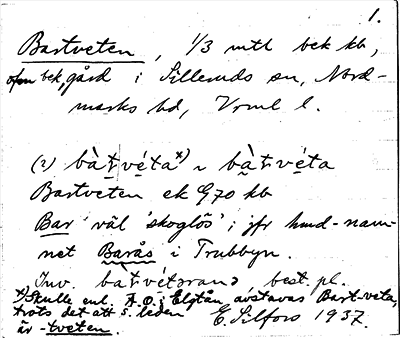 1.
Bastveten, 1/3 mtl bek kb,
ofm bek, gård i Silleruds sn, Nord-
marks hd, Vrml l.
(2) bàt̨véta x) ~ bàt̨véta
Bastveten ek G70 kb
Bar väl 'skoglös'; jfr hmd-nam-
net Barås i Trubbyn.
Inv. bat̨vétərana best. pl.
x) Skulle enl. A.O.; Elgtån avstavas Bart-veta,
trots det att s. leden
är -tveten.
E. Silfors 1937.